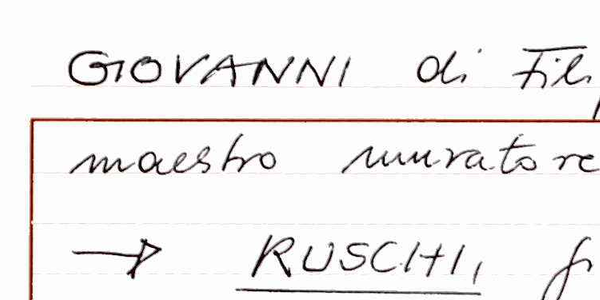 GIOVANNI di
maestro muratore
→ RUSCHI,